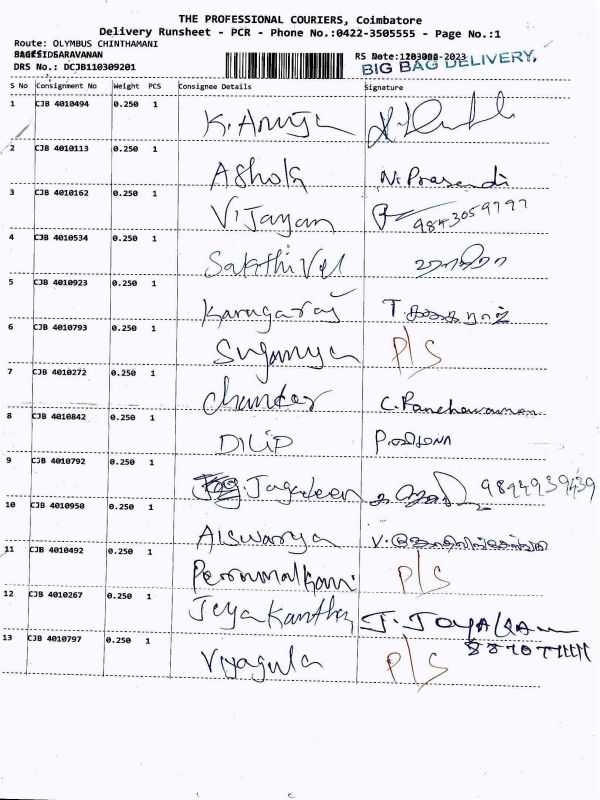 THE PROFESSIONAL COURIERS, Coimbatore
Delivery Runsheet - PCR - Phone No.:0422-3505555 - Page No.:1
Route: OLYMBUS CHINTHAMANI
RS Date:
BIG BAG DELIVERY.
DRS No.: DCJB110309201
S No Consignment No Weight PCS Consignee Details Signature
1 CJB 4010494 0.250 1 K. Anuja
2 CJB 4010113 0.250 1 Ashok N. Prasandi
3 CJB 4010162 0.250 1 Vijayan 9843059797
4 CJB 4010534 0.250 1 Sakthivel
5 CJB 4010923 0.250 1 Kanagaraj T. கனகராஜ்
6 CJB 4010793 0.250 1 Suganya P/S
7 CJB 4010272 0.250 1 Chander C. Panchavarnam
8 CJB 4010842 0.250 1 DILIP
9 CJB 4010792 0.250 1 Jagadeen
10 CJB 4010950 0.250 1 Aiswarya
11 CJB 4010492 0.250 1 Perumalkani P/S
12 CJB 4010267 0.250 1 Jeyakanthan
13 CJB 4010797 0.250 1 Viyagula P/S